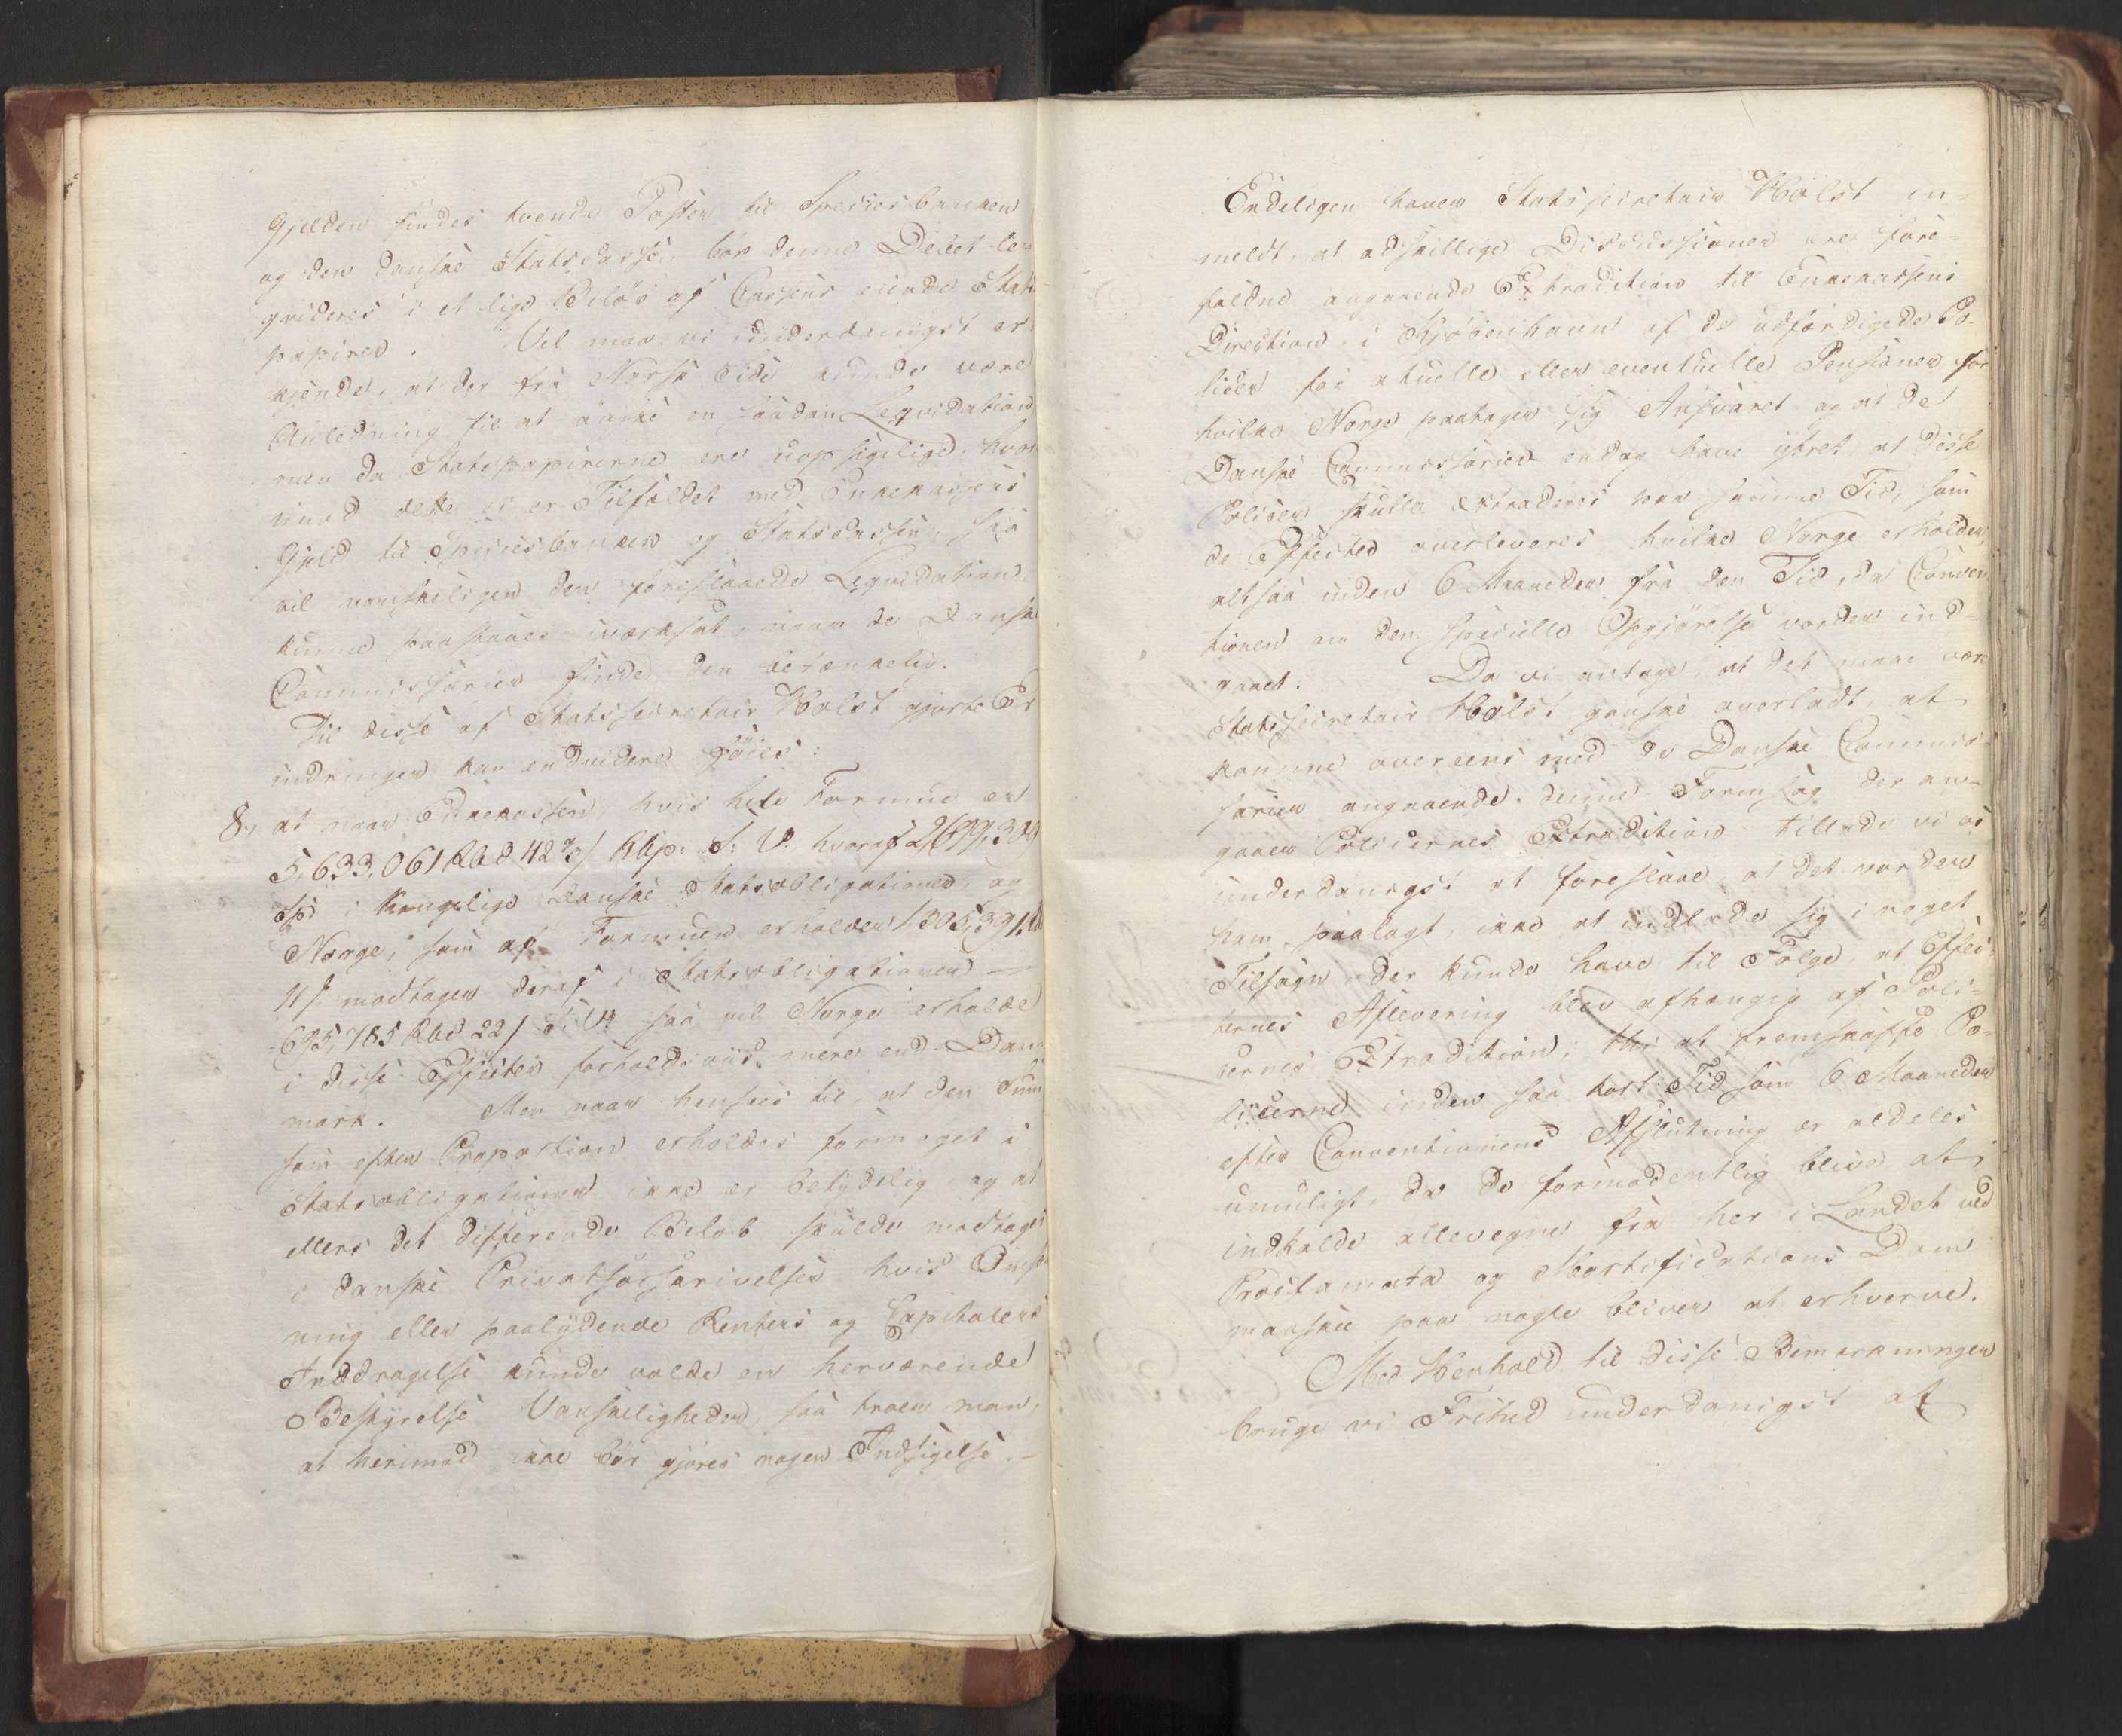 Gjelden findes tvende Poster til Speciesbanken
og den danske Statscasse, bør denne Debet li-
qvideres i et lige Beløb af Cassens eiende Stats
papirer. Vel maa vi underdanigst er-
kjende, at der fra Norsk Side kunde være
Anledning til at ønske en saadan Leqvidation
men da Statspapirerne ere uopsigelige, hvor
imod dette ei er Tilfældet med Enkekassens
Gjeld til Speciesbanken og Statscassen, saa
vil vanskeligen den foreslaaede Leqvidation
kunne paastaaes iværksat, naar de Danske
Commissarier finde den betænkelig.
Til disse af Statssecretair Holst gjorte Er-
indringer kan endvidere føies:
8, at naar Enkekassen, hvis hele Formue er
5,633,061 Rbd 42 2/3 / Rbp: S: V. hvoraf 2,699,309
Sp. i Kongelige danske Statsobligationer, og
Norge, som af Formuen erholder 1305,391 Rbd
11 / modtager deraf i Statsobligationer —
695,785 Rbd 22 / S: V. saa vil Norge erholde
i disse Effecter forholdsviis mere end Dan-
mark. Men naar hensees til, at den Sum
som efter Proportion erholdes formeget i
Statsobligationer ikke er betydelig, og at
ellers det differende Beløb skulde modtages
i danske Privatforskrivelser, hvis Omsæt
ning eller paalydende Renters og Capitalens
Inddragelse kunde volde en herværende
Bestyrelse Vanskeligheder saa troer man,
at herimod ikke bør gjøres nogen Indsigelse. —
Endeligen haver Statssecretair Holst in-
meldt, at adskillige Discussioner ere fore-
faldne angaaende Extradition til Enkekassens
Direction i Kjøbenhavn af de udfærdigede Po-
licer for actuelle eller eventuelle Pensioner for
hvilke Norge paatager sig Ansvaret og at de
Danske Commissarier endog have ytret, at disse
Policer skulle extraderes paa samme Tid, som
de Effecter overleveres, hvilke Norge erholder,
altsaa inden 6 Maaneder fra den Tid, da Conven
tionen om den specielle Opgjørelse vorder ind-
gaaet. Da vi antage, at det maae være
Statssecretair Holst ganske overladt, at
komme overeens med de Danske Commis-
sarier angaaende denne Formsag der an-
gaaer Policernes Extradition tillade vi os
underdanigst at foreslaae, at det vorder
ham paalagt, ikke at indlade sig i noget
Tilsagn, der kunde have til Følge, at Effec-
ternes Aflevering blev afhængig af Poli-
cernes Extradition; thi at fremskaffe Po-
licerne inden saa kort Tid som 6 Maaneder
efter Conventionens Afslutning er aldeles
umuligt, da de formodentlig blive at
indkalde allevegne fra her i Landet ved
Proclamata og Mortifications Dom
maaskee paa nogle bliver at erhverve.
Med Henhold til disse Bemærkninger
bruge vi Frihed underdanigst at